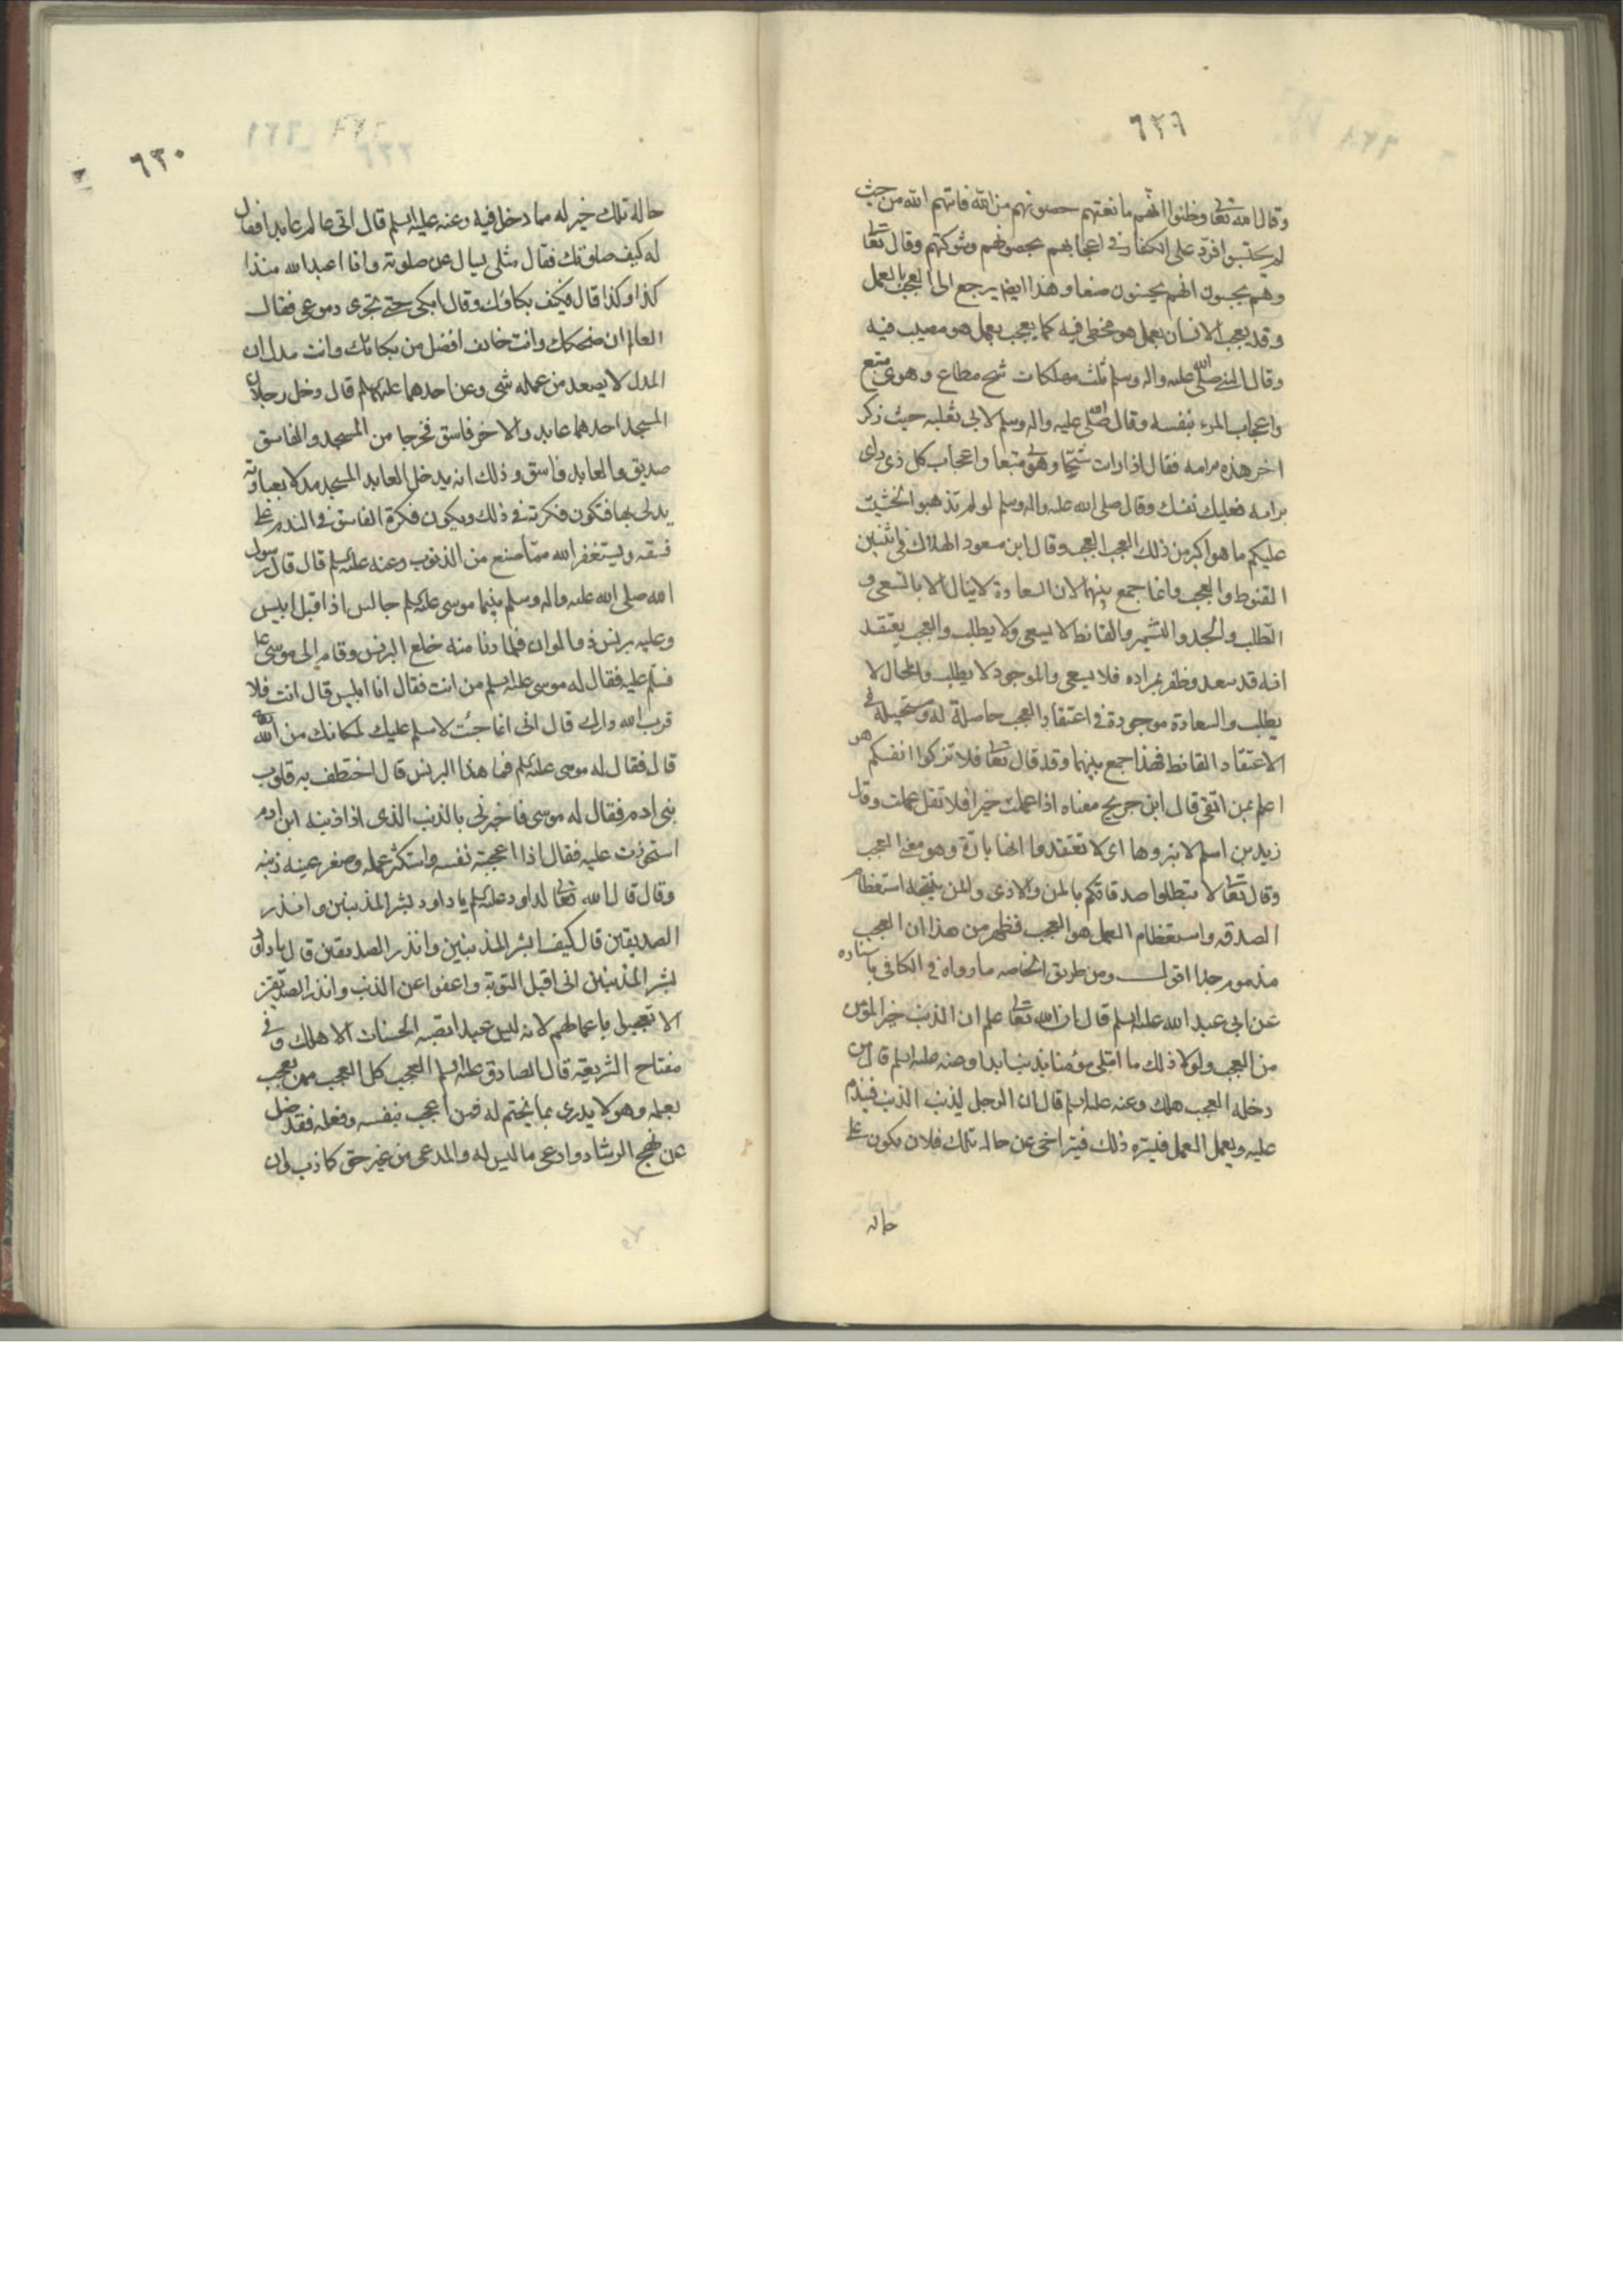 ٦٢٩
وقال الله تعا وظنوا انهم مانعتهم حصونهم من الله فاتيهم الله من حيث
لم يحتسبوا فرد على الكفار في اعجابهم بحصونهم وشوكتهم وقال تعا
وهم يحسبون انهم يحسنون صنعا وهذا ايضا يرجع الى العجب بالعمل
وقد يعجب الانسان بعمل هو مخطى فيه كما يعجب بعمل هو مصيب فيه
وقال النبي صلى الله عليه واله وسلم ثلث مهلكات شح مطاع وهوى متبع
واعجاب المرء بنفسه وقال صلى الله عليه واله وسلم لابي ثعلبه حيث ذكر
اخر هذه الامه فقال اذا رايت شحا وهوى متبعا واعجاب كل ذي راى
برايه فعليك نفسك وقال صلى الله عليه واله وسلم لو لم تذهبوا لخشيت
عليكم ما هو اكبر من ذلك العجب العجب وقال ابن مسعود الهلاك في اثنين
القنوط والعجب وانما جمع بينهما لان السعادة لا ينال الا بالسعى و
الطلب والجد والتشمر والقانط لا يسعى ولا يطلب والعجب يعتقد
انه قد سعد وظفر بمراده فلا يسعى والموجود لا يطلب والمحال لا
يطلب والسعادة موجودة في اعتقاد العجب حاصلة له ومستحيلة في
الاعتقاد القانط فهذا جمع بينهما وقد قال تعا فلا تزكوا انفسكم هو
اعلم بمن اتقى قال ابن جريج معناه اذا عملت خيرا فلا تقل عملت وقال
زيد بن اسلم لا تبروها اى لا تعتقدوا انها بارة وهو معنى العجب
وقال تعا لا تبطلوا صدقاتكم بالمن والاذى والمن نتيجه استعظام
الصدقه واستعظام العمل هو العجب فظهر من هذا ان العجب
مذموم جدا اقول ومن طريق الخاصه ما رواه في الكافي باسناده
عن ابي عبد الله عليه السلم قال ان الله تعا علم ان الذنب خير للمؤمن
من العجب ولولا ذلك ما ابتلى مؤمنا بذنب ابدا وعنه عليه السلم قال من
دخله العجب هلك وعنه عليه السلم قال ان الرجل ليذنب الذنب فيندم
عليه ويعمل العمل فيسره ذلك فيتراخى عن حاله تلك فلان يكون على
حاله
٦٣٠
حاله تلك خير له مما دخل فيه وعنه عليه السلم قال اتى عالم عابدا فقال
له كيف صلوتك فقال مثلى يسال عن صلوته وانا اعبد الله منذ
كذا وكذا قال فكيف بكاؤك وقال ابكى حتى تجرى دموعى فقال
العالم ان ضحكك وانت خائف افضل من بكائك وانت مدل ان
المدل لا يصعد من عمله شى وعن احدهما عليهما السلم قال دخل رجلان
المسجد احدهما عابد والاخر فاسق فخرجا من المسجد والفاسق
صديق والعابد فاسق وذلك انه يدخل العابد المسجد مدلا بعبادته
يدلى بها فتكون فكرته في ذلك ويكون فكرة الفاسق في الندم على
فسقه ويستغفر الله مما صنع من الذنوب وعنه عليه السلم قال قال رسول
الله صلى الله عليه واله وسلم بينما موسى عليه السلم جالس اذ اقبل ابليس
وعليه برنس ذو الوان فلما دنا منه خلع البرنس وقام الى موسى ع
فسلم عليه فقال له موسى عليه السلم من انت فقال انا ابليس قال انت فلا
قرب الله دارك قال انى انما جئت لاسلم عليك لمكانك من الله
قال فقال له موسى عليه السلم فما هذا البرنس قال اختطف به قلوب
بنى ادم فقال له موسى فاخبرنى بالذنب الذى اذا اذنبه ابن ادم
استحوذت عليه فقال اذا اعجبته نفسه واستكثر عمله وصغر عينه ذنبه
وقال قال الله تعا لداود عليه السلم يا داود بشر المذنبين وانذر
الصديقين قال كيف ابشر المذنبين وانذر الصديقين قال يا داود
بشر المذنبين انى اقبل التوبة واعفوا عن الذنب وانذر الصديقين
الا تعجبوا باعمالهم لانه ليس عبد انصبه الحسنات الا هلك وفى
مفتاح الشريعة قال الصادق عليه السلم العجب كل العجب ممن يعجب
بعمله وهو لا يدرى بما يختم له فمن اعجب بنفسه وفعله فقد ضل
عن نهج الرشاد وادعى ما ليس له والمدعى من غير حق كاذب وان